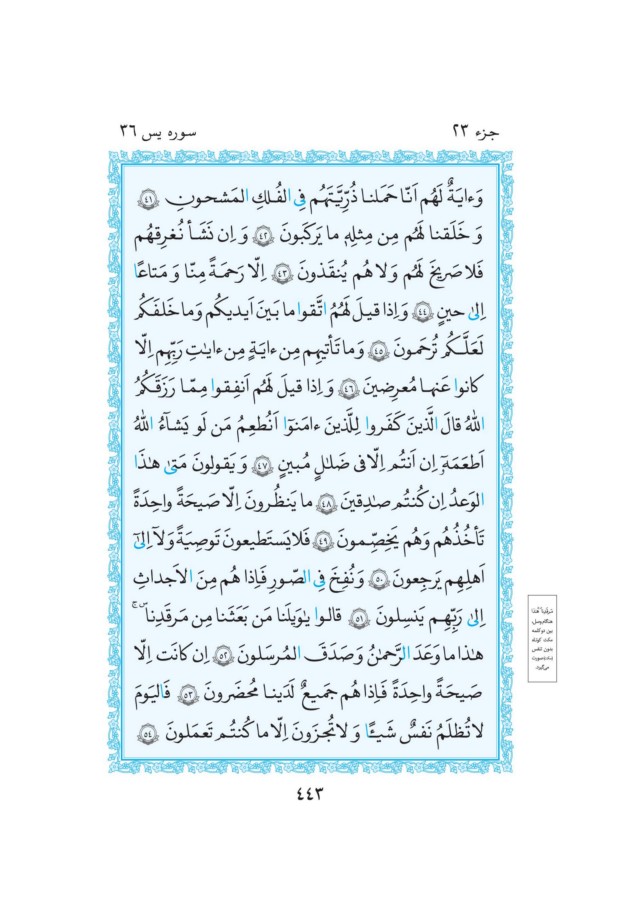 جزء ۲۳
سوره یس ۳۶
وَءايَةٌ لَهُم اَنّا حَمَلنا ذُرِّيَّتَهُم فِي الفُلكِ المَشحونِ ﴿٤١﴾
وَ خَلَقنا لَهُم مِن مِثلِهِ ما يَركَبونَ ﴿٤٢﴾ وَ اِن نَشَأ نُغرِقهُم
فَلا صَريخَ لَهُم وَلا هُم يُنقَذونَ ﴿٤٣﴾ اِلّا رَحمَةً مِنّا وَ مَتاعًا
اِلىٰ حينٍ ﴿٤٤﴾ وَ اِذا قيلَ لَهُمُ اتَّقوا ما بَينَ اَيديكُم وَ ما خَلفَكُم
لَعَلَّكُم تُرحَمونَ ﴿٤٥﴾ وَ ما تَأتيهِم مِن ءايَةٍ مِن ءايٰتِ رَبِّهِم اِلّا
كانوا عَنها مُعرِضينَ ﴿٤٦﴾ وَ اِذا قيلَ لَهُم اَنفِقوا مِمّا رَزَقَكُمُ
اللهُ قالَ الَّذينَ كَفَروا لِلَّذينَ ءامَنوٓا اَنُطعِمُ مَن لَو يَشآءُ اللهُ
اَطعَمَهٓ اِن اَنتُم اِلّا فى ضَلٰلٍ مُبينٍ ﴿٤٧﴾ وَ يَقولونَ مَتىٰ هٰذَا
الوَعدُ اِن كُنتُم صٰدِقينَ ﴿٤٨﴾ ما يَنظُرونَ اِلّا صَيحَةً واحِدَةً
تَأخُذُهُم وَهُم يَخِصِّمونَ ﴿٤٩﴾ فَلا يَستَطيعونَ تَوصِيَةً وَلآ اِلىٰٓ
اَهلِهِم يَرجِعونَ ﴿٥٠﴾ وَ نُفِخَ فِي الصّورِ فَاِذا هُم مِنَ الاَجداثِ
اِلىٰ رَبِّهِم يَنسِلونَ ﴿٥١﴾ قالوا يٰوَيلَنا مَن بَعَثَنا مِن مَرقَدِنا ۜ ۚ
هٰذا ما وَعَدَ الرَّحمٰنُ وَ صَدَقَ المُرسَلونَ ﴿٥٢﴾ اِن كانَت اِلّا
صَيحَةً واحِدَةً فَاِذا هُم جَميعٌ لَدَينا مُحضَرونَ ﴿٥٣﴾ فَاليَومَ
لا تُظلَمُ نَفسٌ شَيـًٔا وَ لا تُجزَونَ اِلّا ما كُنتُم تَعمَلونَ ﴿٥٤﴾
مَرقَدِنا ۜ هٰذا
هنگام وصل،
بین دو کلمه
مکث کوتاه
بدون تنفس
صورت
می‌گیرد.
۴۴۳